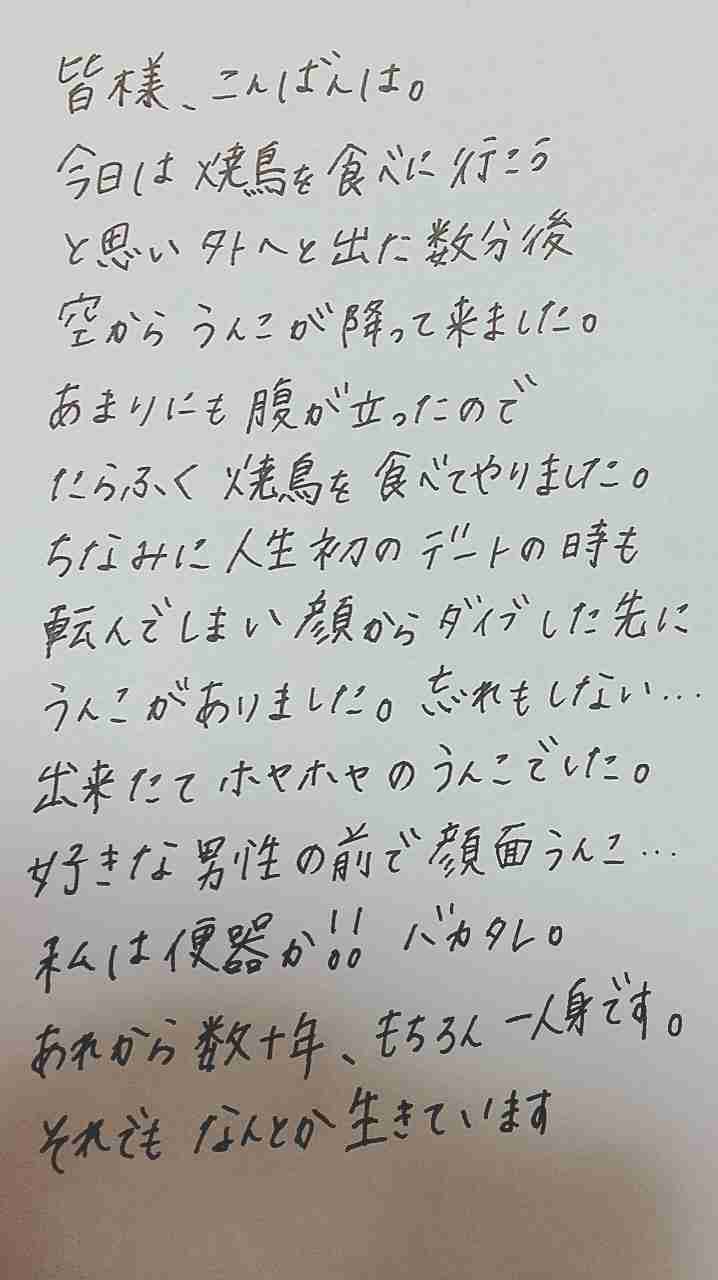 皆様、こんばんは。
今日は焼鳥を食べに行こう
と思い外へと出た数分後
空からうんこが降って来ました。
あまりにも腹が立ったので
たらふく焼鳥を食べてやりました。
ちなみに人生初のデートの時も
転んでしまい顔からダイブした先に
うんこがありました。忘れもしない…
出来たてホヤホヤのうんこでした。
好きな男性の前で顔面うんこ…
私は便器か!! バカタレ。
あれから数十年、もちろん一人身です。
それでもなんとか生きています